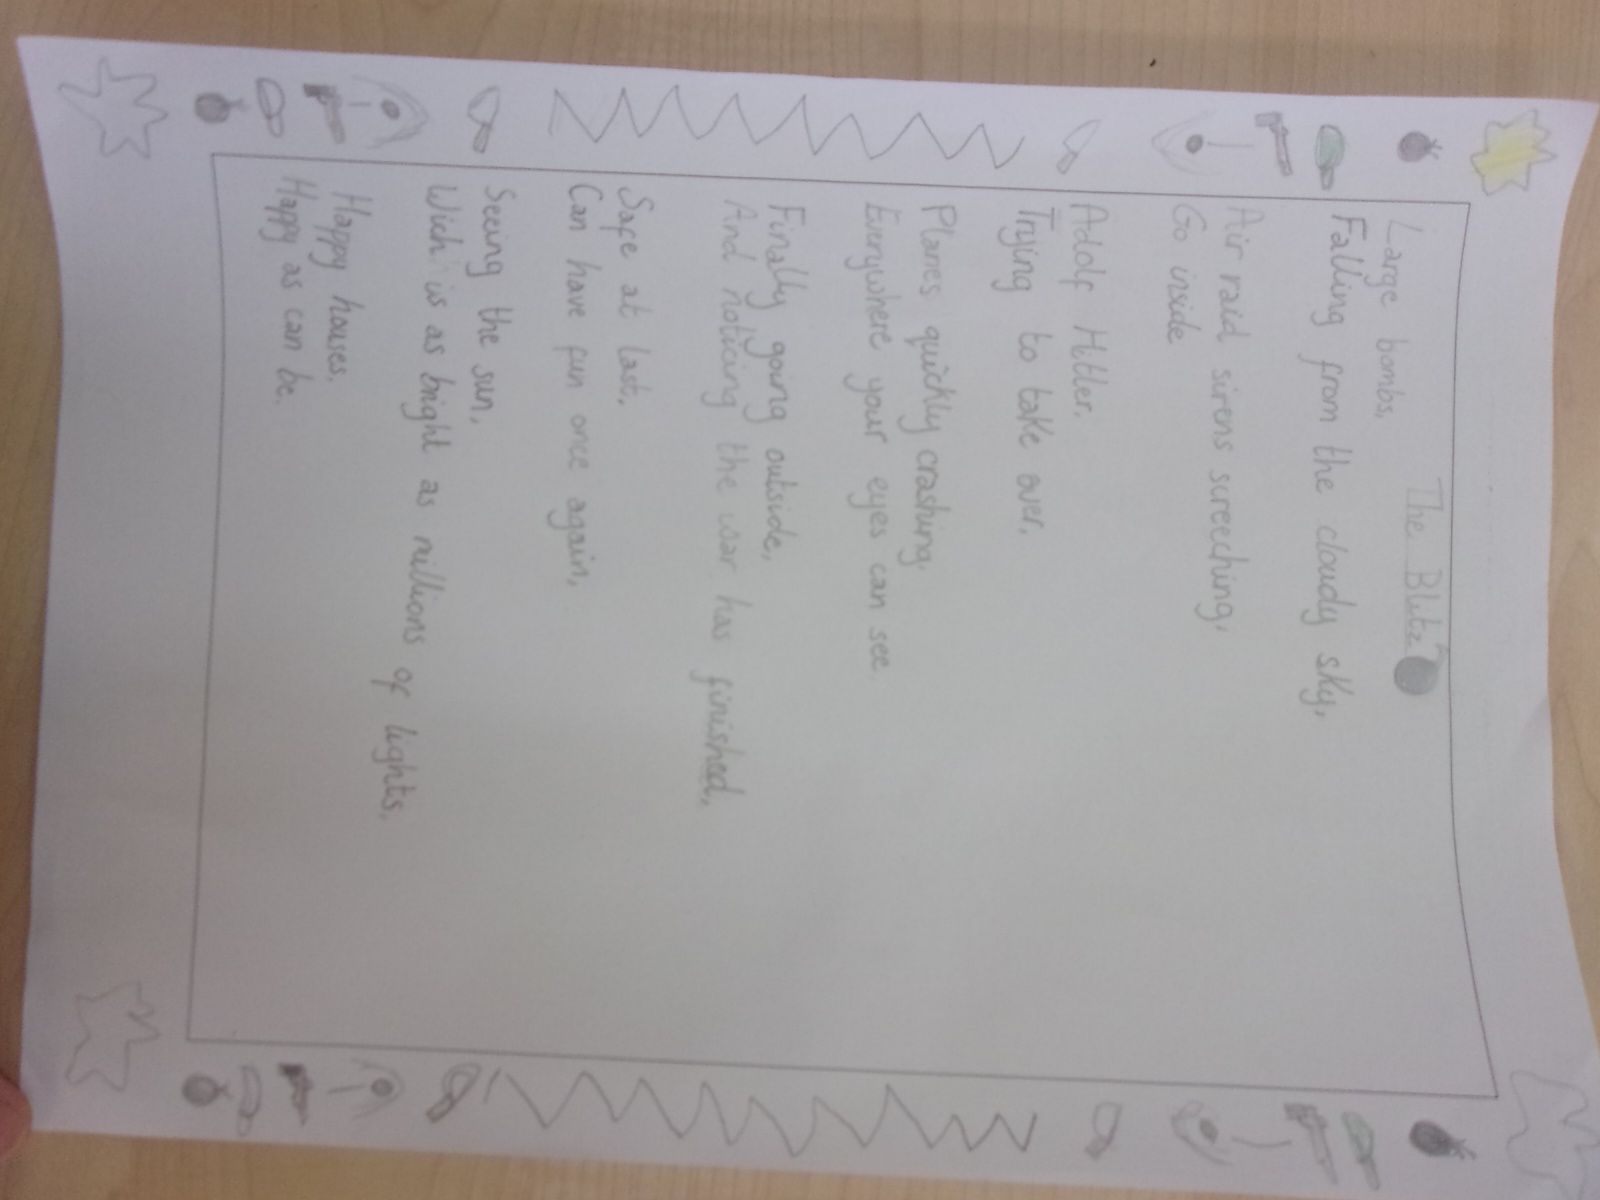 The Blitz
Large bombs,
Falling from the cloudy sky,
Air raid sirens screeching,
Go inside
Addlf Hitler.
Trying to take over.
Planes quickly crashing.
Everywhere your eyes can see
Finally going outside,
And noticing the war has finished,
Safe at last.
Can have fun once again,
Seeing the sun,
Wich is as bright as millions of lights,
Happy houses.
Happy as can be.